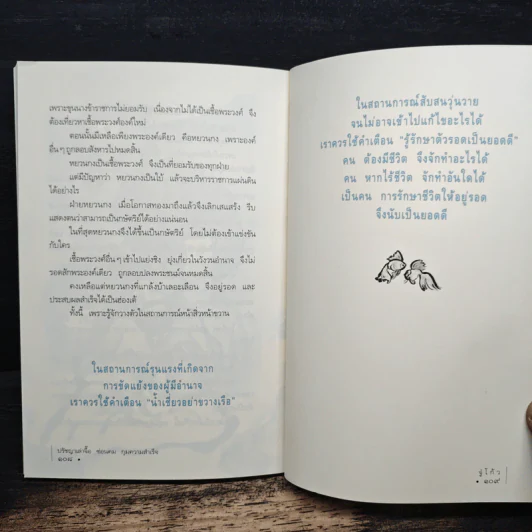 เพราะขุนนางข้าราชการไม่ยอมรับ เนื่องจากไม่ได้เป็นเชื้อพระวงศ์ จึง
ต้องเที่ยวหาเชื้อพระวงศ์องค์ใหม่
ตอนนั้นมีเหลือเพียงพระองค์เดียว คือหยวนกง เพราะองค์
อื่นๆ ถูกลอบสังหารไปหมดสิ้น
หยวนกงเป็นเชื้อพระวงศ์ จึงเป็นที่ยอมรับของทุกฝ่าย
แต่มีปัญหาว่า หยวนกงเป็นใบ้ แล้วจะบริหารราชการแผ่นดิน
ได้อย่างไร
ฝ่ายหยวนกง เมื่อโอกาสทองมาถึงแล้วจึงเลิกเสแสร้ง รีบ
แสดงตนว่าสามารถเป็นกษัตริย์ได้อย่างแน่นอน
ในที่สุดหยวนกงจึงได้ขึ้นเป็นกษัตริย์ โดยไม่ต้องเข้าแข่งขัน
กับใคร
เชื้อพระวงศ์อื่นๆ เข้าไปแย่งชิง ยุ่งเกี่ยวในวังวนอำนาจ จึงไม่
รอดสักพระองค์เดียว ถูกลอบปลงพระชนม์จนหมดสิ้น
คงเหลือแต่หยวนกงที่แกล้งบ้าเลอะเลือน จึงอยู่รอด และ
ประสบผลสำเร็จได้เป็นฮ่องเต้
ทั้งนี้ เพราะรู้จักวางตัวในสถานการณ์หน้าสิ่วหน้าขวาน
ในสถานการณ์รุนแรงที่เกิดจาก
การขัดแย้งของผู้มีอำนาจ
เราควรใช้คำเตือน "น้ำเชี่ยวอย่าขวางเรือ"
ปรัชญาเล่าจื๊อ ซ่อนคม กุมความสำเร็จ
๑๐๘ •
ในสถานการณ์สับสนวุ่นวาย
จนไม่อาจเข้าไปแก้ไขอะไรได้
เราควรใช้คำเตือน "รู้รักษาตัวรอดเป็นยอดดี"
คน ต้องมีชีวิต จึงจักทำอะไรได้
คน หากไร้ชีวิต จักทำอันใดได้
เป็นคน การรักษาชีวิตให้อยู่รอด
จึงนับเป็นยอดดี
• ๑๐๙